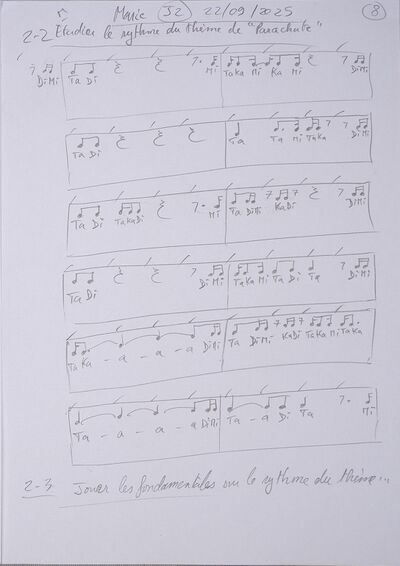 Marie J2 22/09/2025 8
2-2 Etudier le rythme du thème de "Parachute"
DiMi Ta Di Mi TaKa Mi Ka Mi DiMi
Ta Di Ta Ta Mi TaKa DiMi
Ta Di TaKaDi Mi Ta DiMi KaDi DiMi
Ta Di DiMi TaKa Mi Ta Di Ta DiMi
TaKa - a - a - a DiMi Ta DiMi KaDi TaKa Mi TaKa
Ta - a - a - a DiMi Ta - a Di Ta Mi
2-3 Jouer les fondamentales sur le rythme du thème...